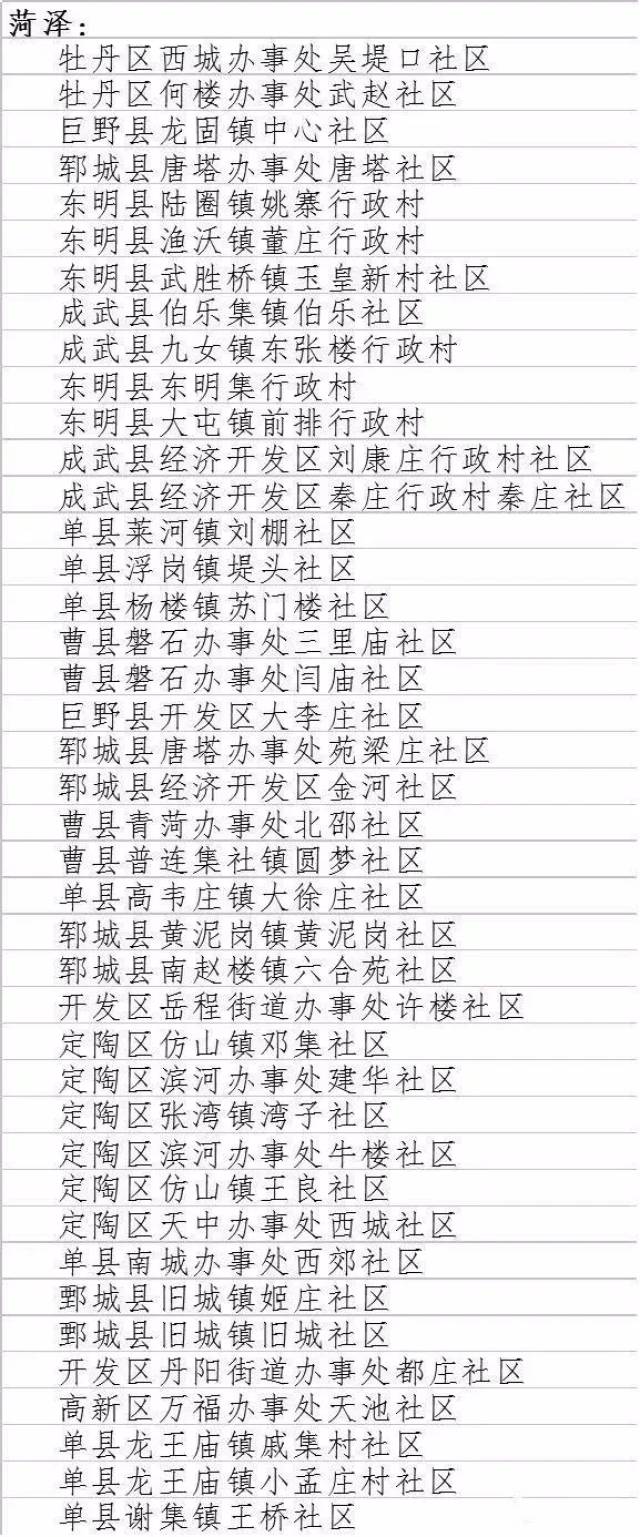 菏泽:
牡丹区西城办事处吴堤口社区
牡丹区何楼办事处武赵社区
巨野县龙固镇中心社区
郓城县唐塔办事处唐塔社区
东明县陆圈镇姚寨行政村
东明县渔沃镇董庄行政村
东明县武胜桥镇玉皇新村社区
成武县伯乐集镇伯乐社区
成武县九女镇东张楼行政村
东明县东明集行政村
东明县大屯镇前排行政村
成武县经济开发区刘康庄行政村社区
成武县经济开发区秦庄行政村秦庄社区
单县莱河镇刘棚社区
单县浮岗镇堤头社区
单县杨楼镇苏门楼社区
曹县磐石办事处三里庙社区
曹县磐石办事处闫庙社区
巨野县开发区大李庄社区
郓城县唐塔办事处苑梁庄社区
郓城县经济开发区金河社区
曹县青菏办事处北邵社区
曹县普连集社镇圆梦社区
单县高韦庄镇大徐庄社区
郓城县黄泥岗镇黄泥岗社区
郓城县南赵楼镇六合苑社区
开发区岳程街道办事处许楼社区
定陶区仿山镇邓集社区
定陶区滨河办事处建华社区
定陶区张湾镇湾子社区
定陶区滨河办事处牛楼社区
定陶区仿山镇王良社区
定陶区天中办事处西城社区
单县南城办事处西郊社区
鄄城县旧城镇姬庄社区
鄄城县旧城镇旧城社区
开发区丹阳街道办事处都庄社区
高新区万福办事处天池社区
单县龙王庙镇戚集村社区
单县龙王庙镇小孟庄村社区
单县谢集镇王桥社区